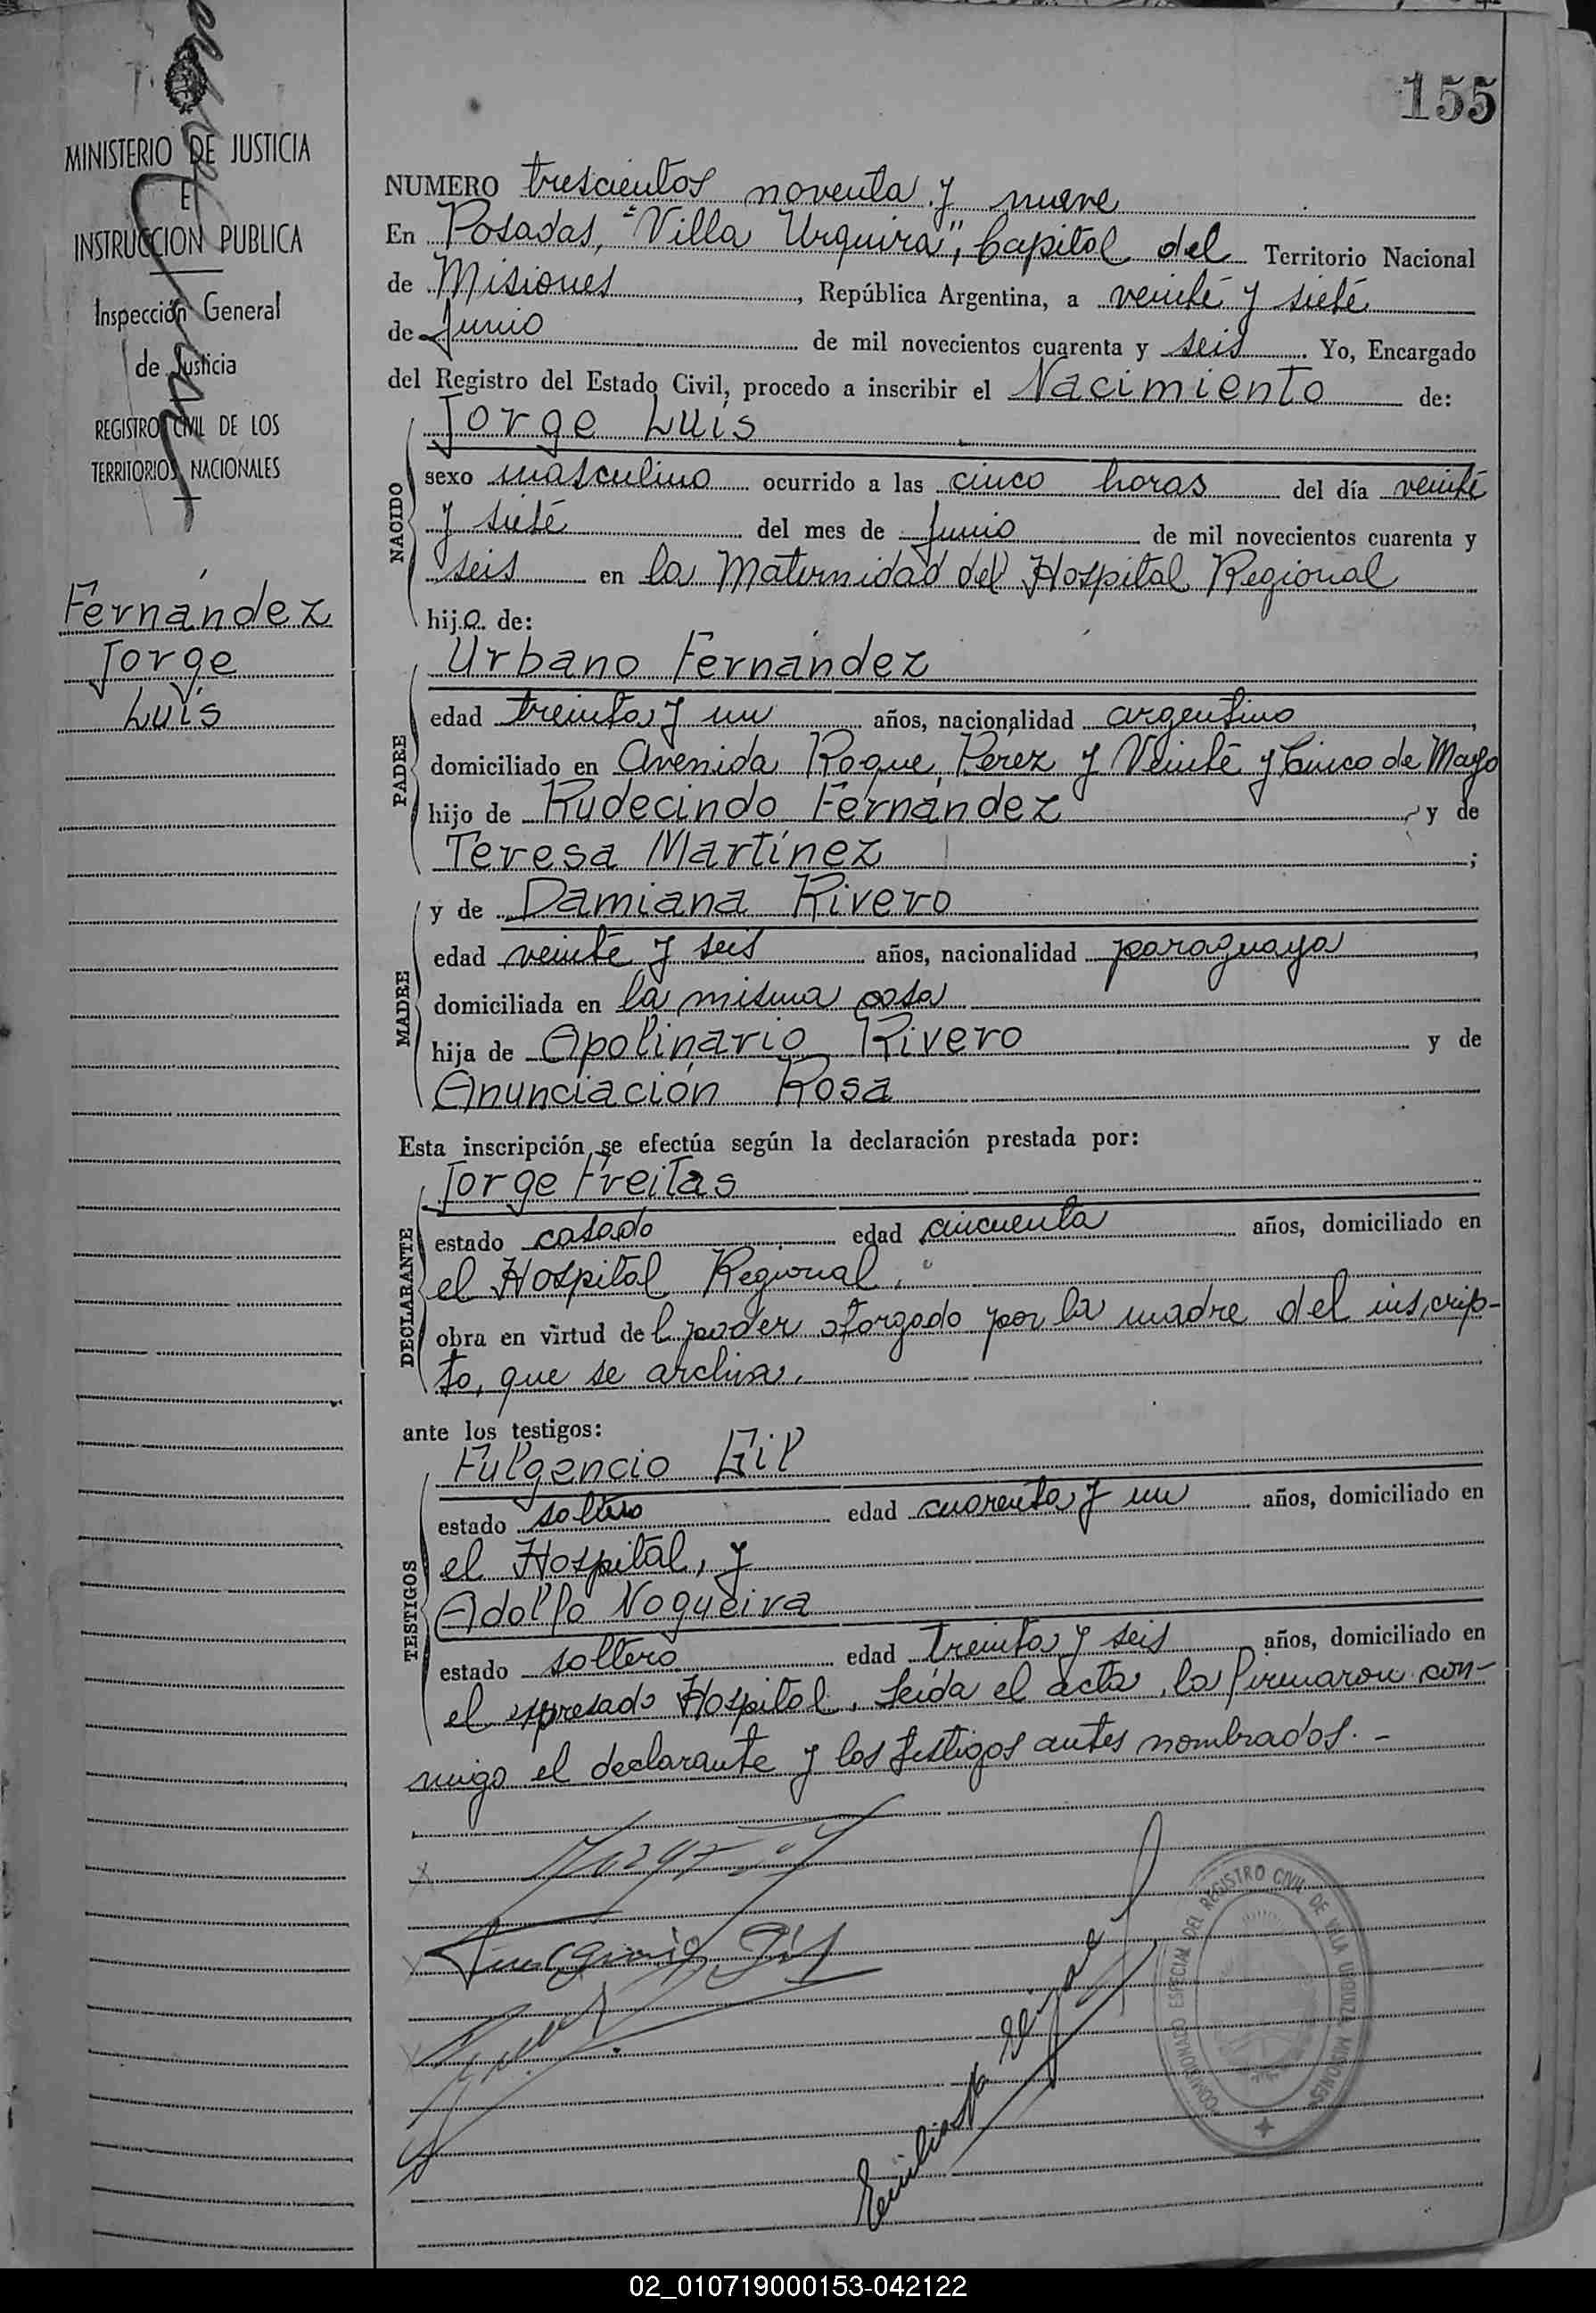 155
MINISTERIO DE JUSTICIA
E
INSTRUCCION PUBLICA
Inspección General
de Justicia
REGISTRO CIVIL DE LOS
TERRITORIOS NACIONALES
Fernández
Jorge
Luís
NUMERO trescientos noventa y nueve
En Posadas, "Villa Urquiza", Capital del Territorio Nacional
de Misiones, República Argentina, a veinte y siete
de Junio de mil novecientos cuarenta y seis. Yo, Encargado
del Registro del Estado Civil, procedo a inscribir el Nacimiento de:
NACIDO
Jorge Luis
sexo masculino ocurrido a las cinco horas del día veinte
y siete del mes de Junio de mil novecientos cuarenta y
seis en la Maternidad del Hospital Regional
hijo de:
PADRE
Urbano Fernández
edad treinta y un años, nacionalidad argentino,
domiciliado en Avenida Roque Pérez y Veinte y Cinco de Mayo
hijo de Rudecindo Fernández y de
Teresa Martínez;
MADRE
y de Damiana Rivero
edad veinte y seis años, nacionalidad paraguaya,
domiciliada en la misma casa
hija de Apolinario Rivero y de
Anunciación Rosa
Esta inscripción se efectúa según la declaración prestada por:
DECLARANTE
Jorge Freitas
estado casado edad cincuenta años, domiciliado en
el Hospital Regional,
obra en virtud del poder otorgado por la madre del inscrip-
to, que se archiva.
ante los testigos:
TESTIGOS
Fulgencio Gil
estado soltero edad cuarenta y un años, domiciliado en
el Hospital, y
Adolfo Nogueira
estado soltero edad treinta y seis años, domiciliado en
el expresado Hospital. Leída el acta, la firmaron con-
migo el declarante y los testigos antes nombrados.-
COMISIONADO ESPECIAL DEL REGISTRO CIVIL DE VILLA URQUIZA MISIONES
02_010719000153-042122